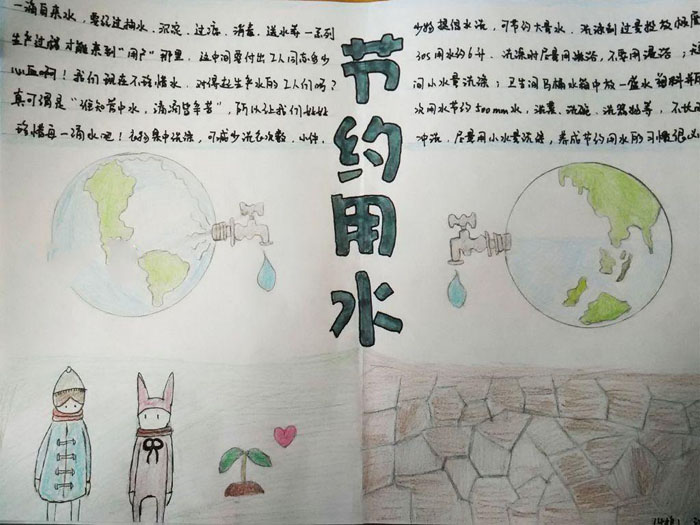 一滴自来水，要经过抽水、沉淀、过滤、消毒、送水等一系列
生产过程才能来到“用户”那里，这中间要付出工人同志多少
心血啊！我们现在不珍惜水，对得起生产水的工人们吗？
真可谓是“谁知管中水，滴滴皆辛苦”，所以让我们
珍惜每一滴水吧！衣物集中洗涤，可减少洗衣次数，小件、
少物提倡水洗，可节约大量水，洗涤剂过量投放
30s用水约6升、洗澡时尽量用淋浴，不要用澡浴；
间小水量洗涤；卫生间马桶水箱中放一盛水塑料瓶
次用水节约500mm水，洗菜、洗碗、洗器物等，不
冲洗，尽量用小水量洗涤，养成节约用水的习惯很
节约用水